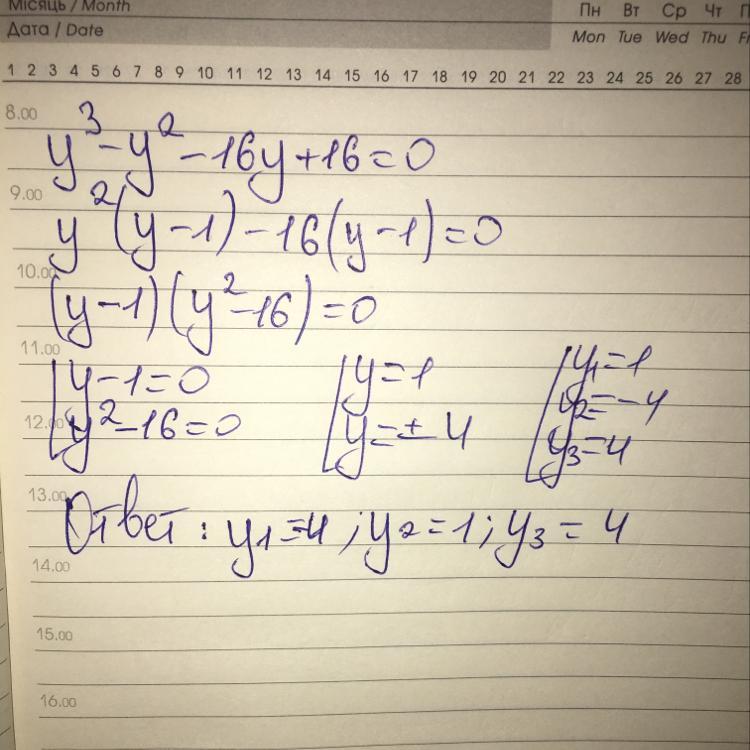 Місяць / Month
Дата / Date
Пн Вт Ср Чт
Mon Tue Wed Thu
1 2 3 4 5 6 7 8 9 10 11 12 13 14 15 16 17 18 19 20 21 22 23 24 25 26 27 28
8.00
y³-y²-16y+16=0
9.00
y²(y-1)-16(y-1)=0
10.00
(y-1)(y²-16)=0
11.00
y-1=0 y=1 y₁=1
y₂=-4
12.00
y²-16=0 y=±4 y₃=4
13.00
Ответ: y₁=4; y₂=1; y₃=4
14.00
15.00
16.00